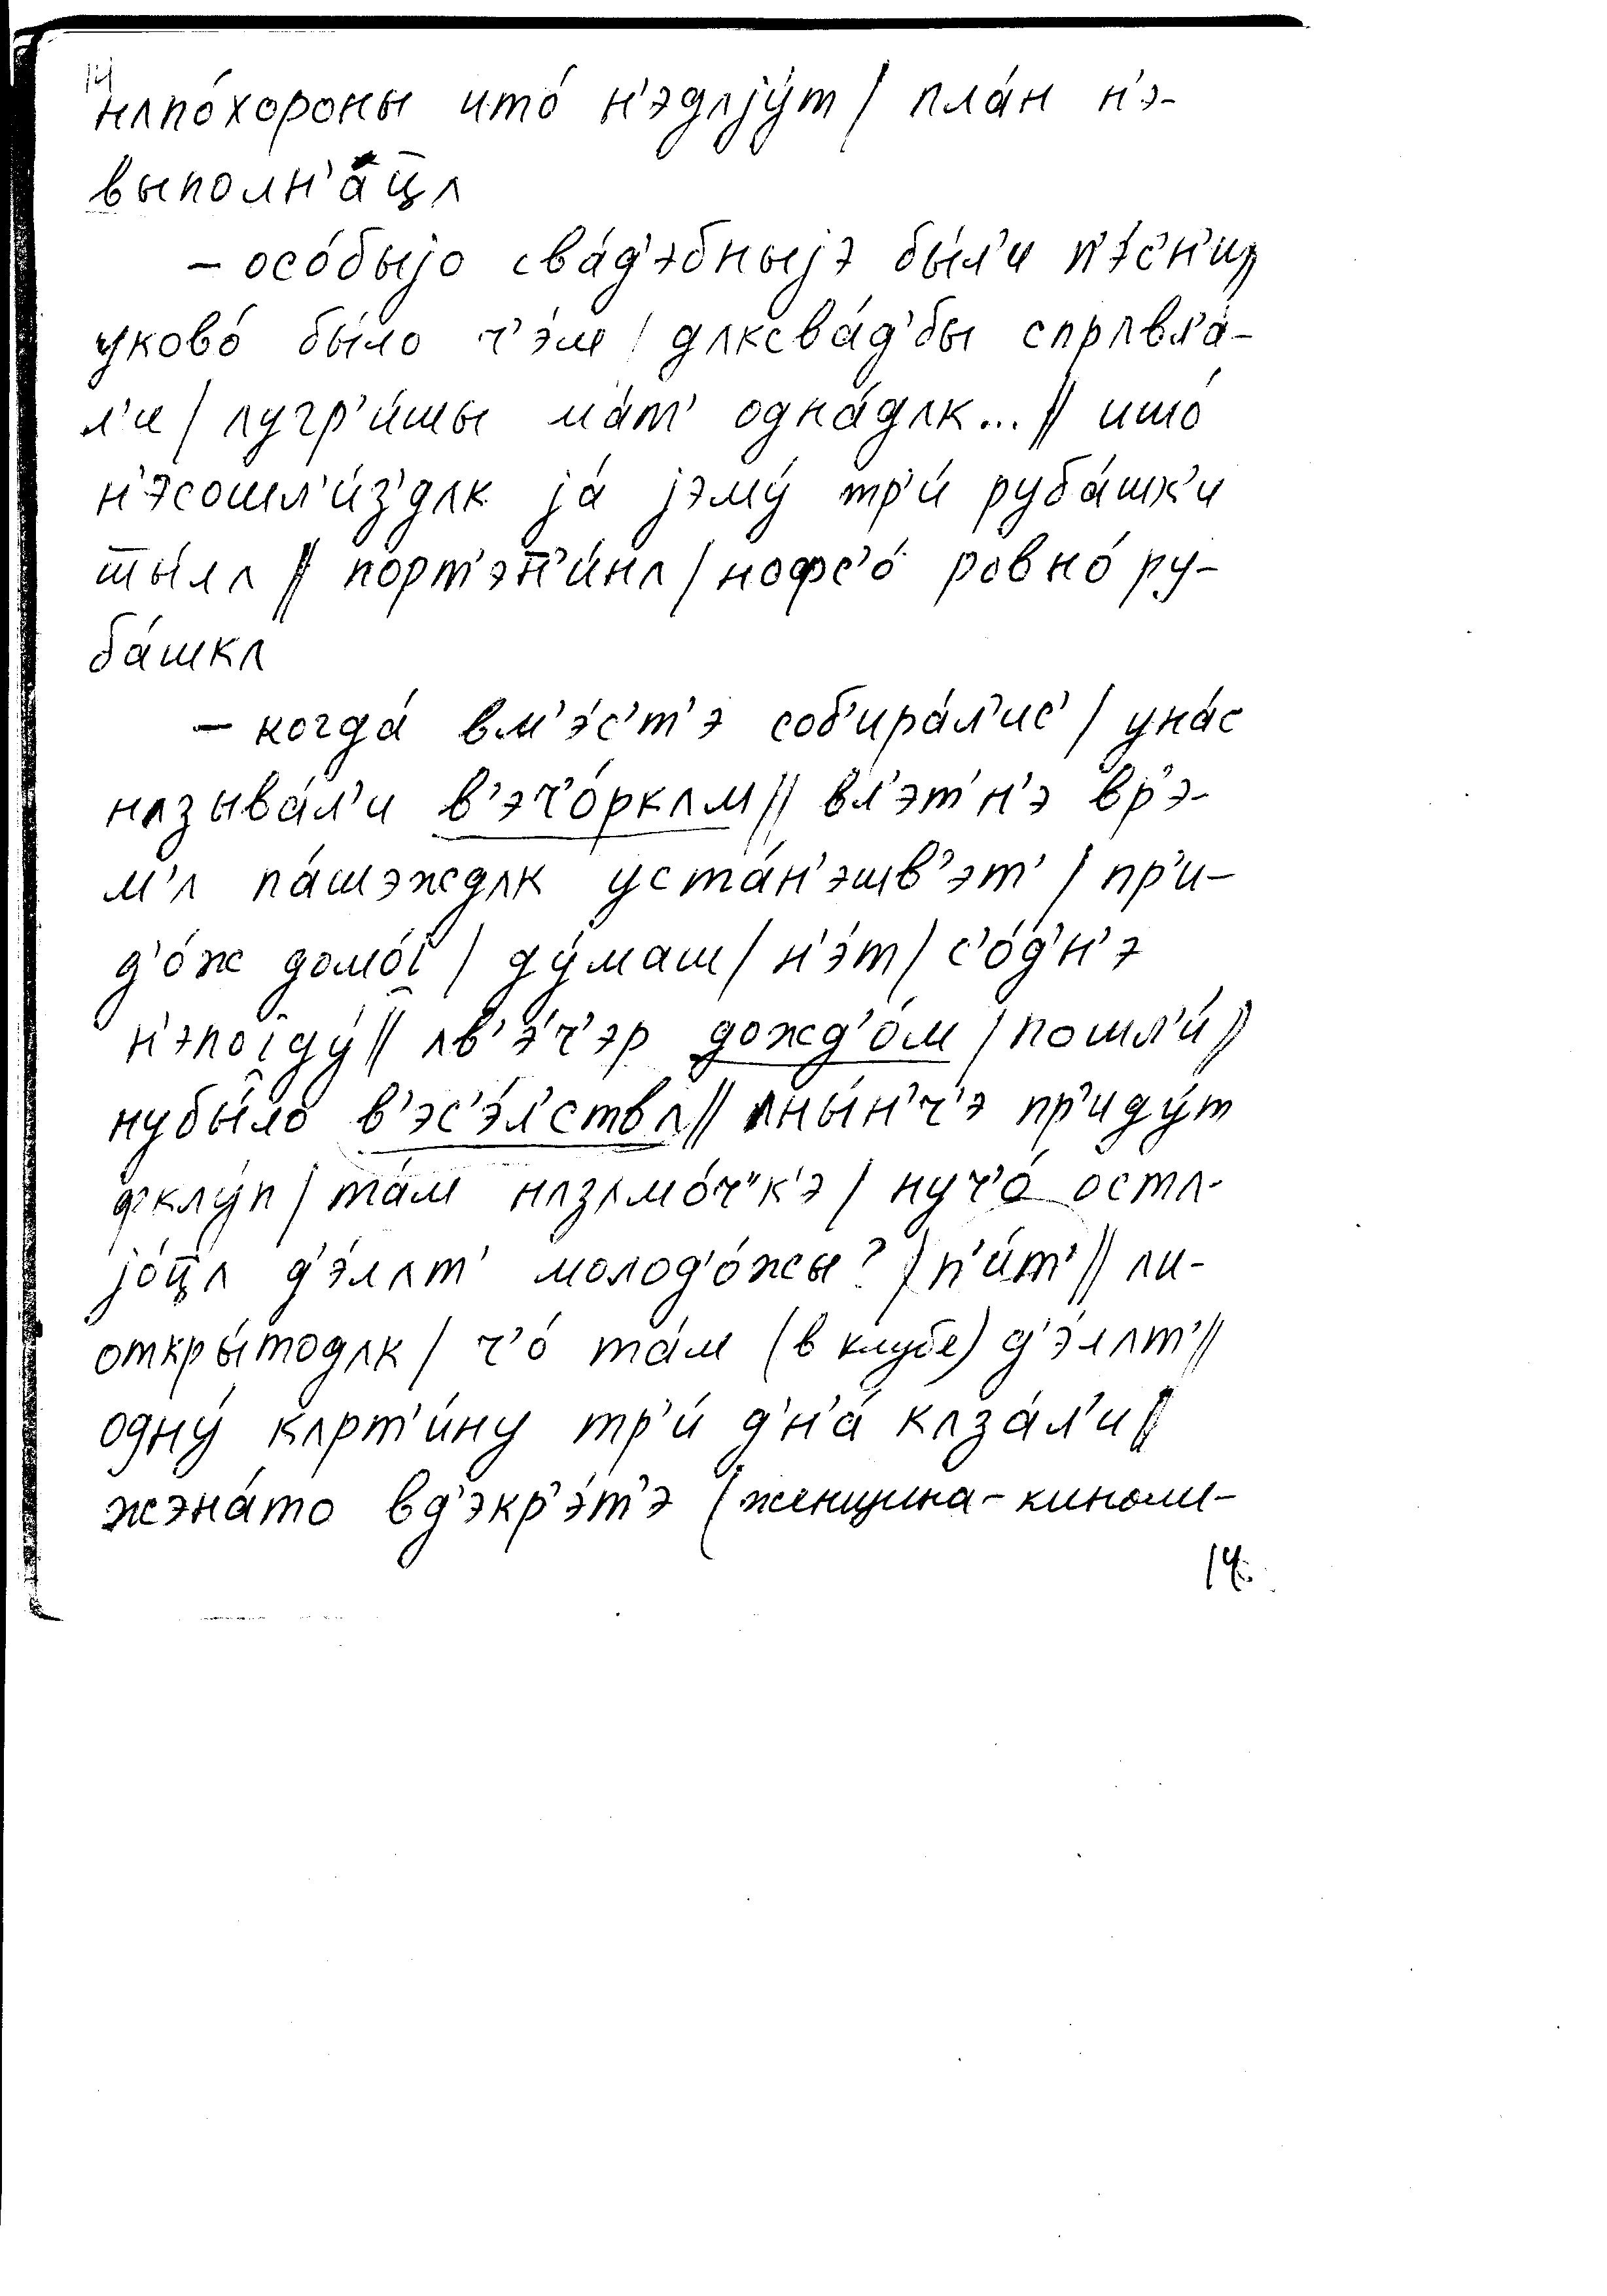 14
нʌпо́хороны што́ н'эдʌjу́т / пла́н н'э-
выполн'а́ц̅ʌ
– осо́быjо сва́д'эбныjэ бы́л'и п'э́с'н'и //
уково́ бы́ло ч'э́м / дʌксва́д'бы спрʌвл'а́-
л'и / ʌугр'и́шы ма́т' одна́дʌк... // ишо́
н'эсошл'и́з'дʌк jа́ jэму́ тр'и́ руба́шк'и
шы́лʌ // порт'эн'и́нʌ / нофс'о́ ровно́ ру-
ба́шкʌ
– когда́ вм'э́с'т'э соб'ира́л'ис' / уна́с
нʌзыва́л'и в'эч'о́ркʌм // вл'э́т'н'э вр'э-
м'ʌ па́шэждʌк уста́н'эшв'эт' / пр'и-
д'о́ж домо́i̯ / ду́маш / н'э́т / с'о́д'н'э
н'эпоi̯ду́ // ʌв'э́ч'эр дожд'о́м / пошл'и́ //
нубы́ло в'эс'э́л'ствʌ // ʌны́н'ч'э пр'иду́т
фклу́п / та́м нʌзʌмо́ч"к'э / нуч'о́ остʌ-
jо́ц̅ʌ д'э́лʌт' молод'о́жы? / п'и́т' // ʌи-
откры́тодʌк / ч'о́ та́м (в клубе) д'э́лʌт' //
одну́ кʌрт'и́ну тр'и́ д'н'а́ кʌза́л'и //
жэна́то вд'экр'э́т'э (женщина-киноме-
14.